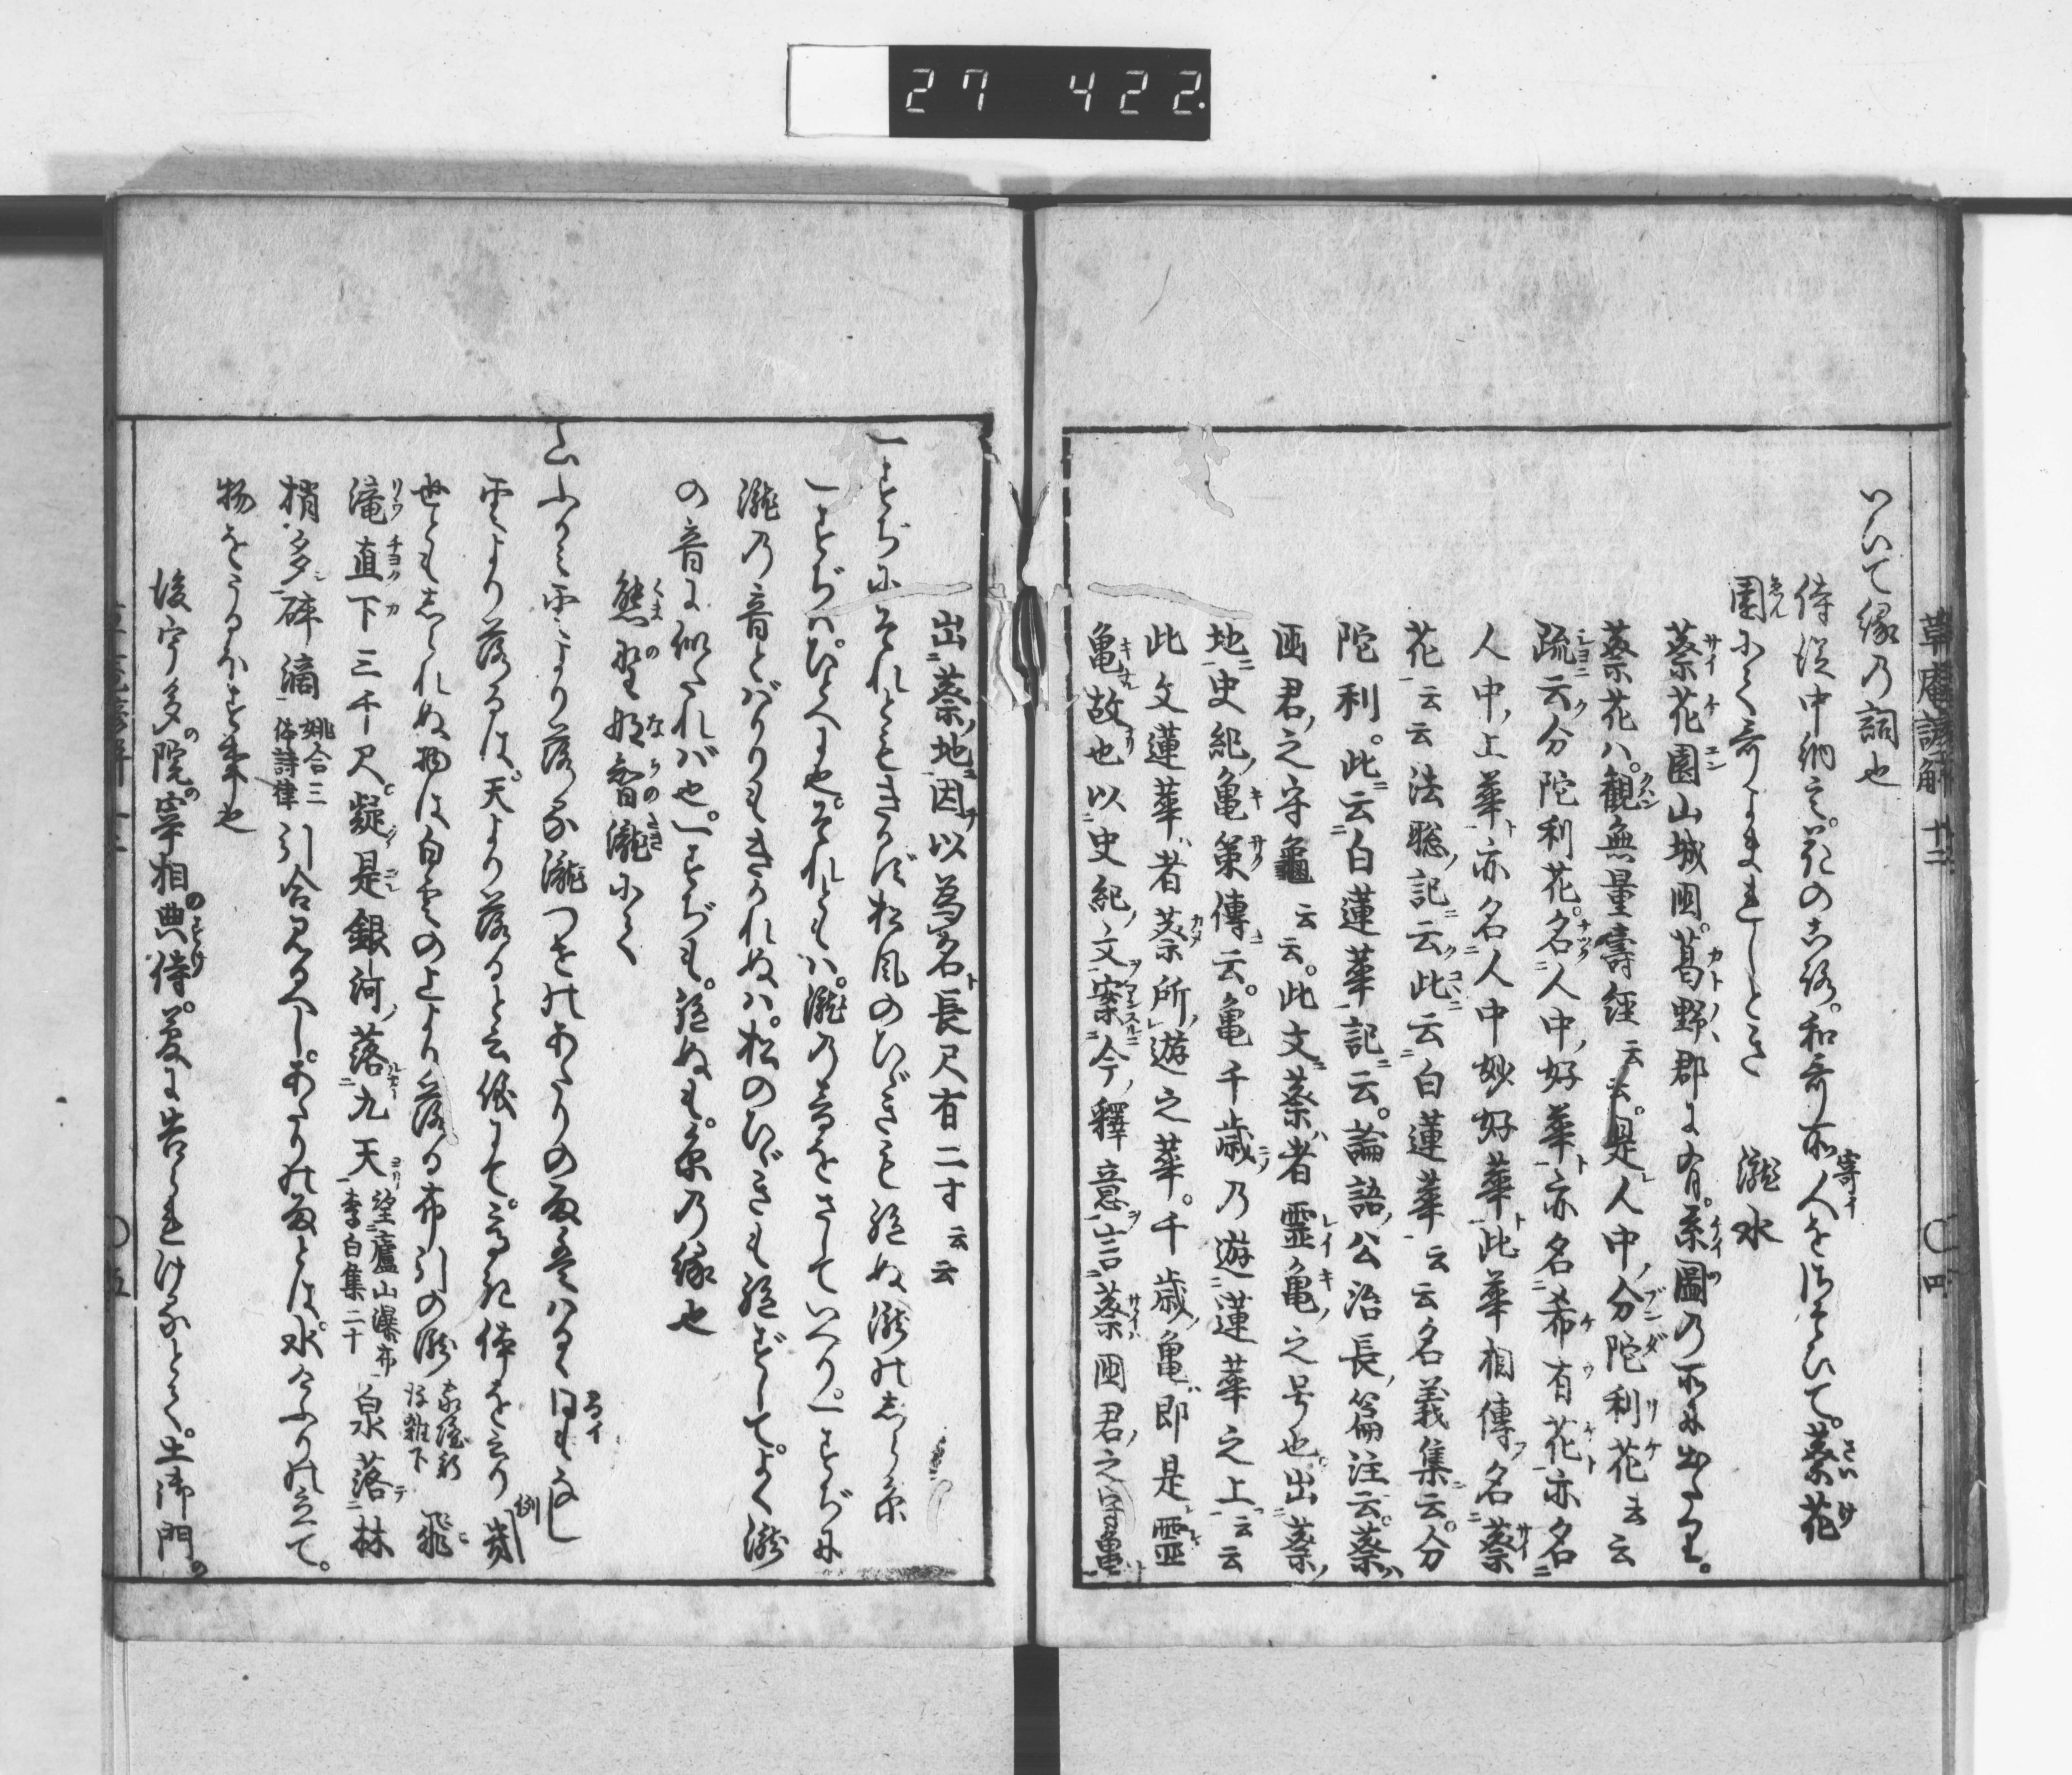 27 422
草庵諺解 十二 〇四
いひて縁の詞也
侍従中納言花の比和哥所人をさそひて蔡花
園にて哥よまれしとき 瀧水
蔡花園山城国葛野郡に有系圖の所に出たり
蔡花ハ観無量壽経云云是人中分陀利花云云
疏云分陀利花名人中好華亦名希有花亦名
人中上華亦名人中妙好華此華相傳名蔡
花云云法聡記云此云白蓮華云云名義集云分
陀利此云白蓮華記云論語公冶長篇注云蔡
国君之守龜云云此文蔡者霊亀之号也出蔡
地史紀亀策傳云亀千歳乃遊蓮華之上云云
此文蓮華者蔡所遊之華千歳亀即是霊
亀故也以史紀文案今釋意言蔡国君之守亀
出蔡地因以為名長尺有二寸云云
一すぢにそれともきかず松風のひゞきも絶ぬ瀧のしら糸
一すぢハひとへに也それともハ瀧の音をさしていへり一すぢに
瀧の音とばかりもきかれぬハ松のひゞきも絶ずしてよく瀧
の音に似たれバ也一すぢも絶ぬも糸の縁也
熊野那智瀧にて
山ふかみ雲より落る瀧つせのあたりの雨ははるゝ日もなし
雲より落るは天より落ると云儀にて高き体をいへり
世ともしられぬ物は白雲の上より落る布引の瀧 飛
滝直下三千尺疑是銀河落九天 望廬山瀑布 李白集二十 泉落林
梢多砕滴 姚合三 体詩律 引合見るへしあたりの雨とは水けふりの立て
物をうるほす事也
後宇多院宰相典侍夢に告られけるとて土御門